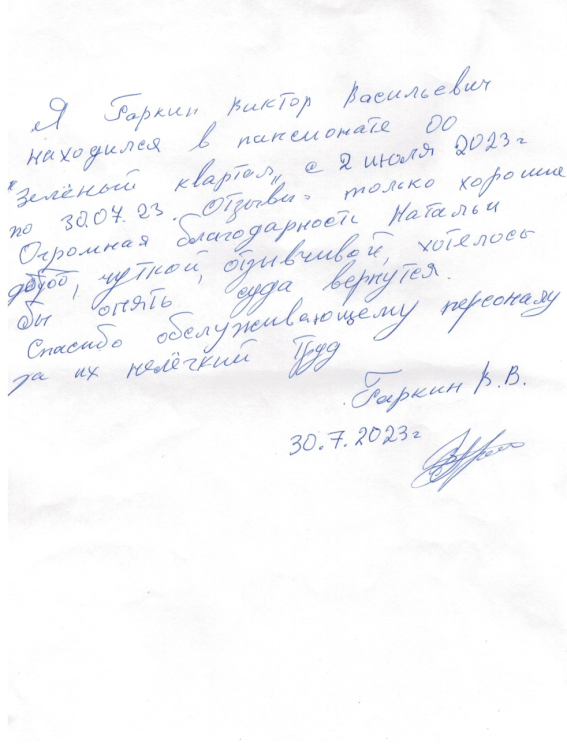 Я Гаркин Виктор Васильевич
находился в пансионате ОО
"Зелёный квартал" с 2 июля 2023г
по 30.07.23. Отзывы - только хорошие
Огромная благодарность Натальи
доброй, чуткой, отзывчивой, хотелось
бы опять суда вернутся.
Спасибо обслуживающему персоналу
за их нелёгкий труд
Гаркин В.В.
30.7.2023г